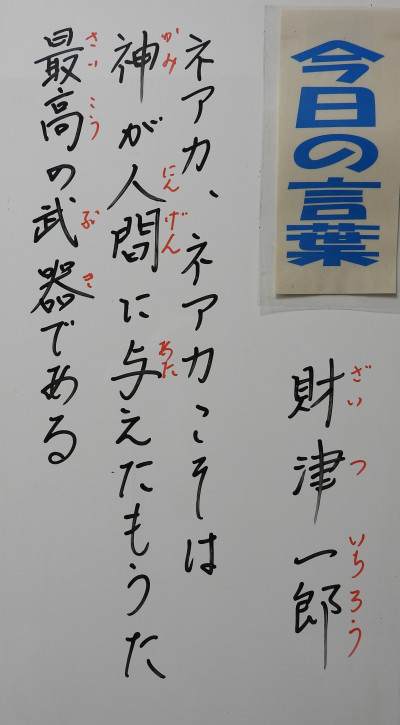 今日の言葉
財津一郎
ざいついちろう
ネアカ、ネアカこそは
神が人間に与えたもうた
かみにんげんあた
最高の武器である
さいこうぶき